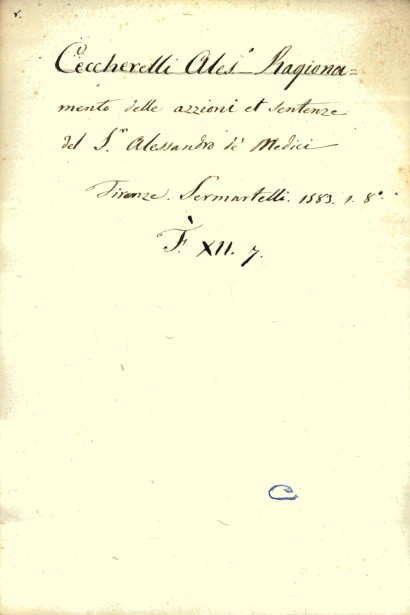 Ceccherelli Ales.o Ragiona=
mento delle azzioni et sentenze
del S.r Alessandro de' Medici
Firenze. Sermartelli. 1583. 1. 8.o
F. XII. 7.
C